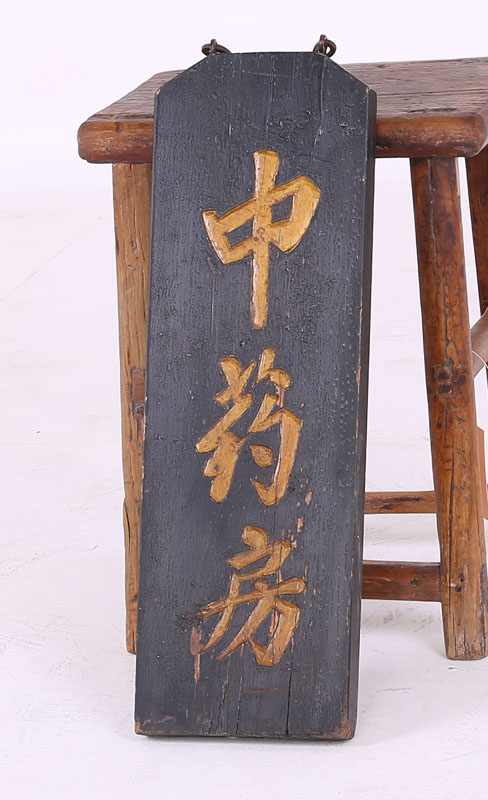 中药房